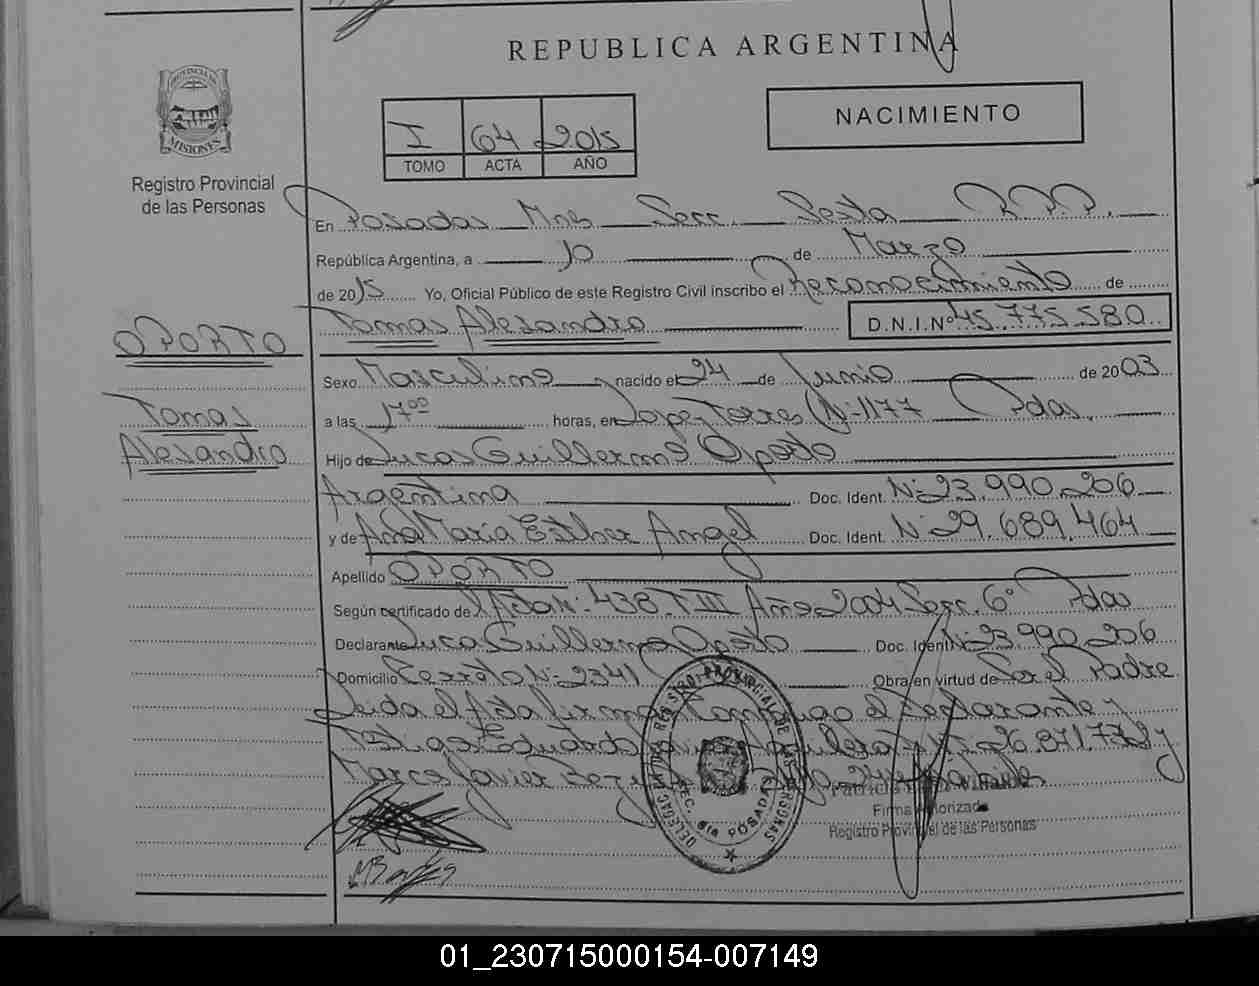 REPUBLICA ARGENTINA
PROVINCIA DE
MISIONES
Registro Provincial
de las Personas
I 64 2015
TOMO ACTA AÑO
NACIMIENTO
En Posadas Mns Secc. Sexta R.P.P.
República Argentina, a 10 de Marzo
de 2015 Yo, Oficial Público de este Registro Civil inscribo el Reconocimiento de
Tomas Alejandro D.N.I.Nº 45.775.580
OPORTO
Tomas
Alejandro
Sexo Masculino nacido el 24 de Junio de 2003
a las 17⁰⁰ horas, en Lopez Torres Nº 1177 Pdas.
Hijo de Lucas Guillermo Oporto
Argentina Doc. Ident. Nº 23.990.206
y de Ana Maria Esther Angel Doc. Ident. Nº 29.689.464
Apellido OPORTO
Según certificado de Acta Nº 438 T III Año 2004 Secc. 6º Pdas
Declarante Lucas Guillermo Oporto Doc. Ident. Nº 23.990.206
Domicilio Nº 2341 Obra en virtud de Ser el Padre
Leida el Acta firma Conmigo el Declarante y
Testigos Eduardo Javier Aguilera
Marco Javier
Firma Autorizada
Registro Provincial de las Personas
DELEGACION DEL REGISTRO PROVINCIAL DE LAS PERSONAS
SEC. 6ta POSADAS
01_230715000154-007149